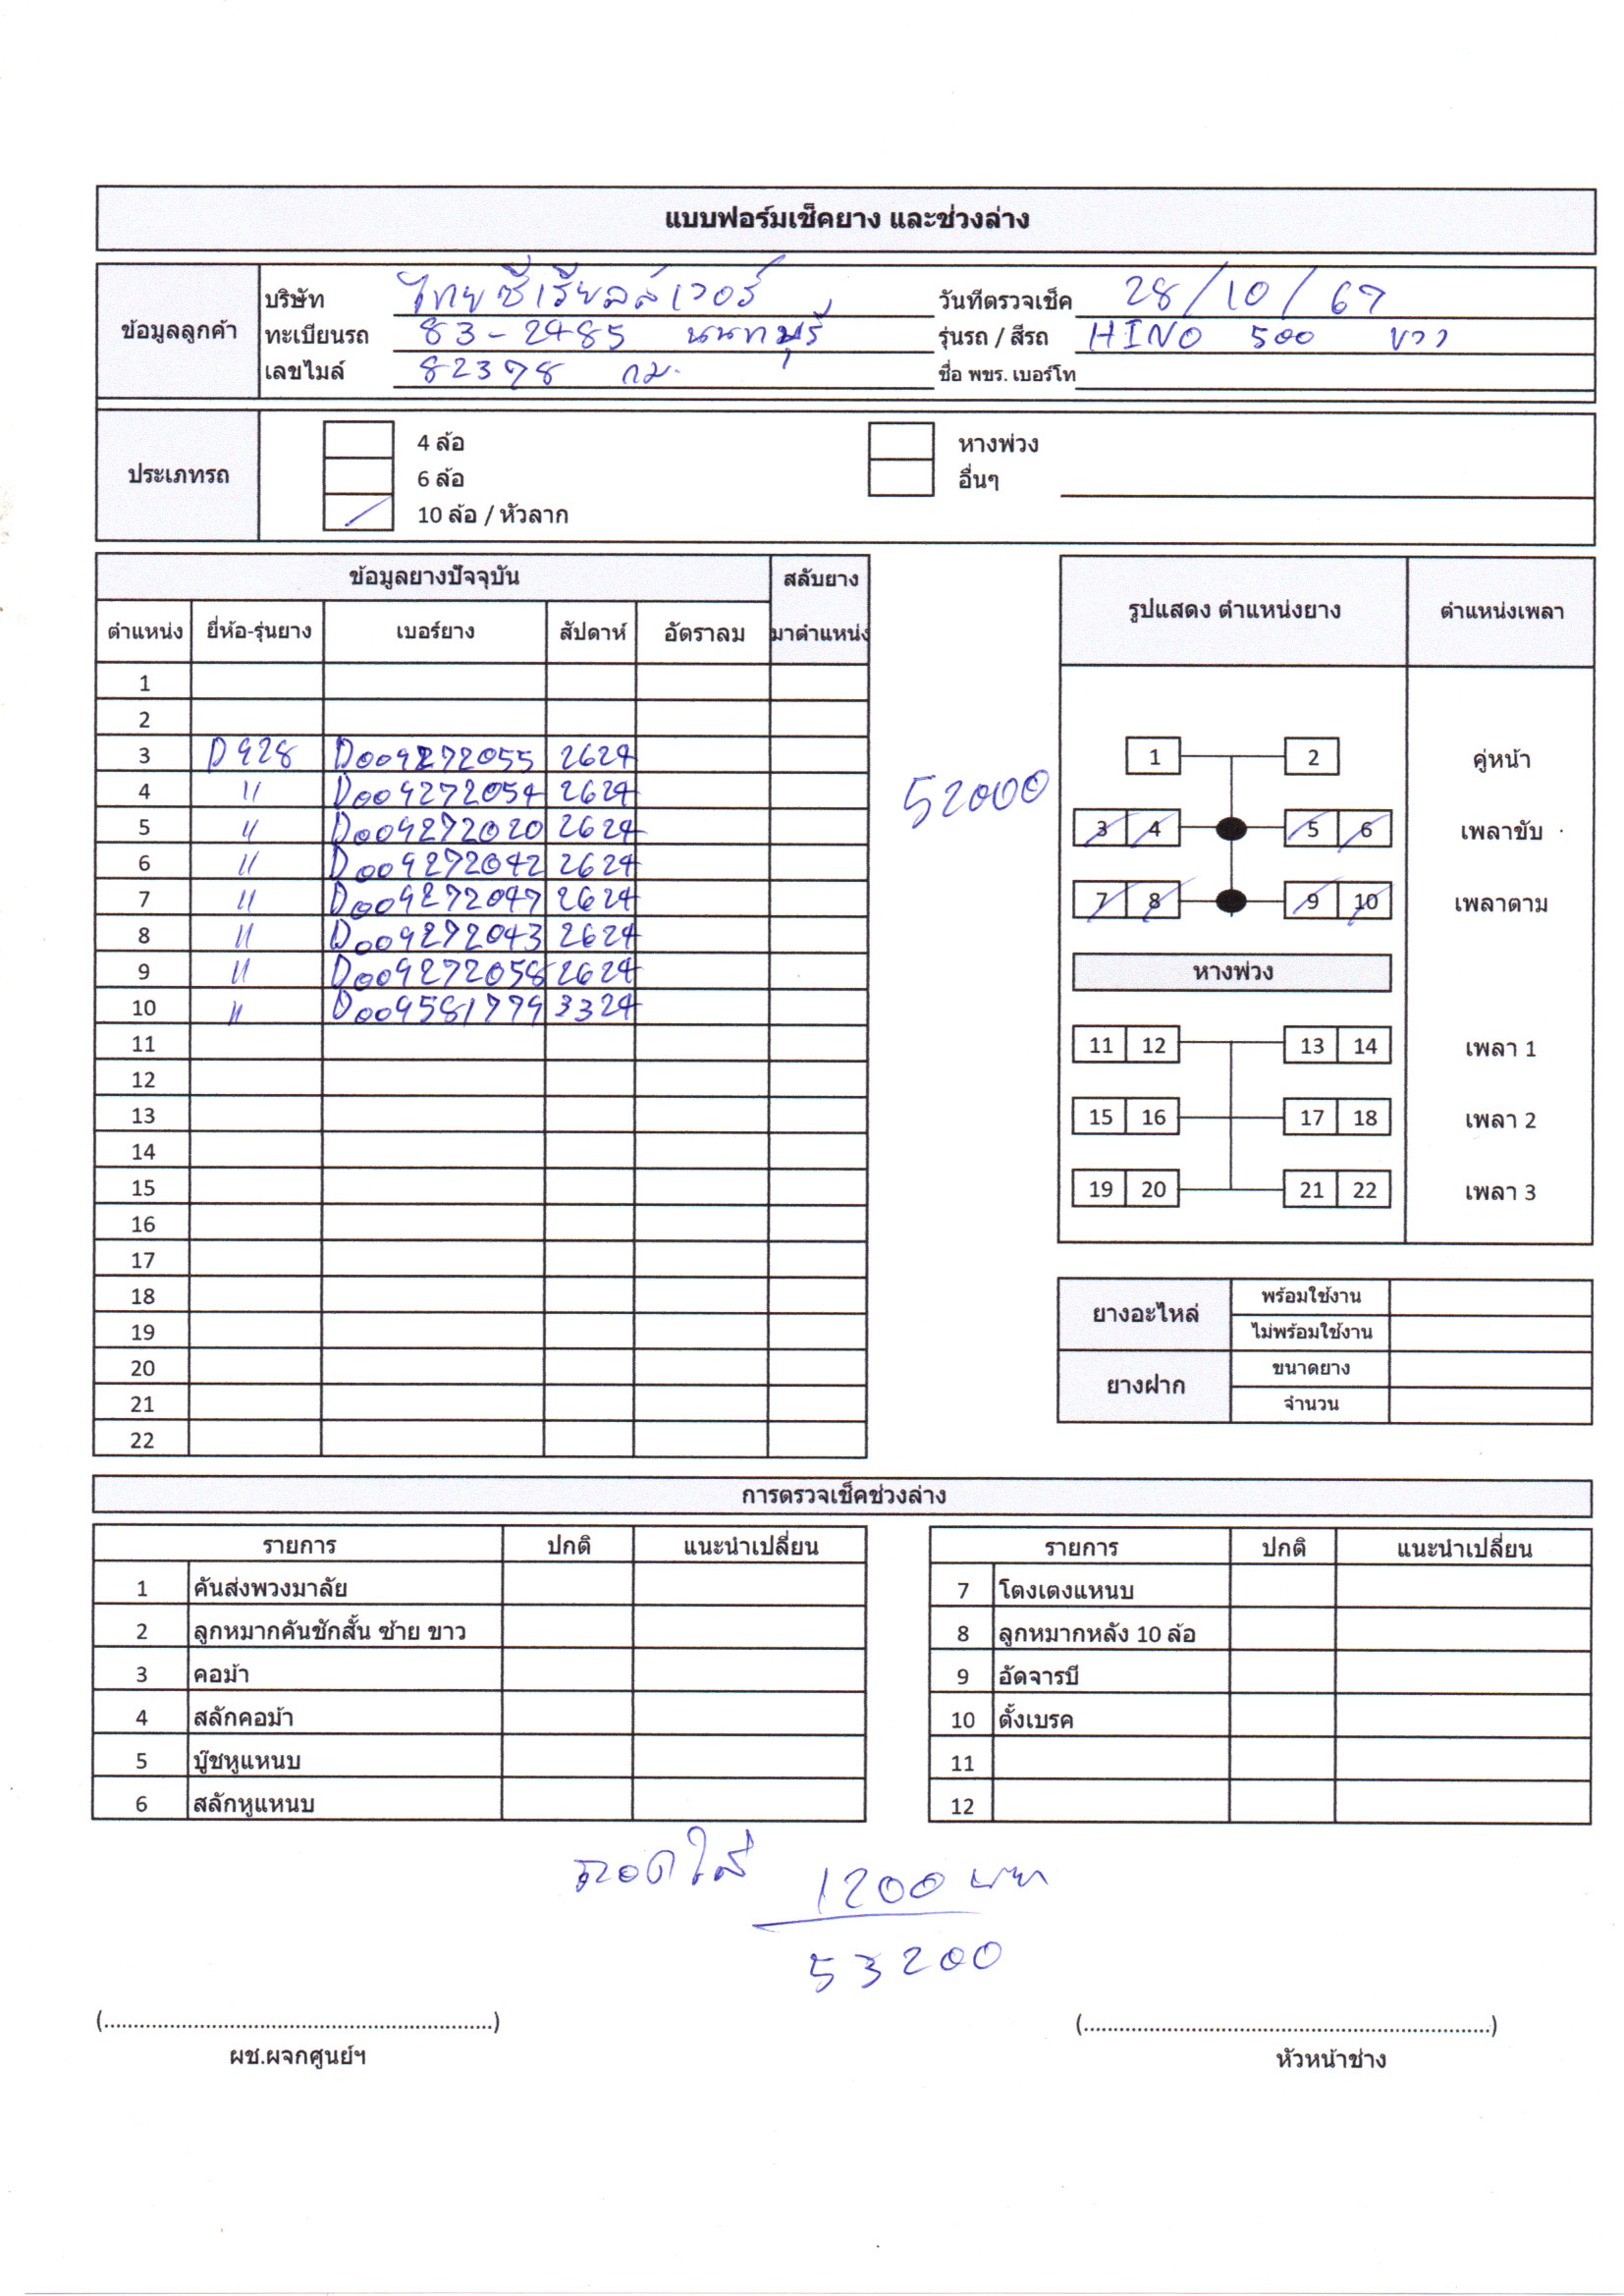 แบบฟอร์มเช็คยาง และช่วงล่าง
ข้อมูลลูกค้า
บริษัท ไทยซีเรียลส์เวอร์ วันที่ตรวจเช็ค 28/10/67
ทะเบียนรถ 83-2485 นนทบุรี รุ่นรถ / สีรถ HINO 500 ขาว
เลขไมล์ 82378 กม. ชื่อ พขร. เบอร์โท
ประเภทรถ
4 ล้อ หางพ่วง
6 ล้อ อื่นๆ
10 ล้อ / หัวลาก
ข้อมูลยางปัจจุบัน สลับยาง
ตำแหน่ง ยี่ห้อ-รุ่นยาง เบอร์ยาง สัปดาห์ อัตราลม มาตำแหน่ง
1
2
3 D928 D009272055 2624
4 " D009272054 2624
5 " D009272020 2624
6 " D009272042 2624
7 " D009272047 2624
8 " D009272043 2624
9 " D009272058 2624
10 " D009581779 3324
11
12
13
14
15
16
17
18
19
20
21
22
52000
รูปแสดง ตำแหน่งยาง ตำแหน่งเพลา
1 2 คู่หน้า
3 4 5 6 เพลาขับ
7 8 9 10 เพลาตาม
หางพ่วง
11 12 13 14 เพลา 1
15 16 17 18 เพลา 2
19 20 21 22 เพลา 3
ยางอะไหล่ พร้อมใช้งาน
ไม่พร้อมใช้งาน
ยางฝาก ขนาดยาง
จำนวน
การตรวจเช็คช่วงล่าง
รายการ ปกติ แนะนำเปลี่ยน รายการ ปกติ แนะนำเปลี่ยน
1 คันส่งพวงมาลัย 7 โตงเตงแหนบ
2 ลูกหมากคันชักสั้น ซ้าย ขาว 8 ลูกหมากหลัง 10 ล้อ
3 คอม้า 9 อัดจารบี
4 สลักคอม้า 10 ตั้งเบรค
5 บู๊ชหูแหนบ 11
6 สลักหูแหนบ 12
ถอดใส่ 1200 บาท
53200
(..................................................................) (.....................................................................)
ผช.ผจกศูนย์ฯ หัวหน้าช่าง